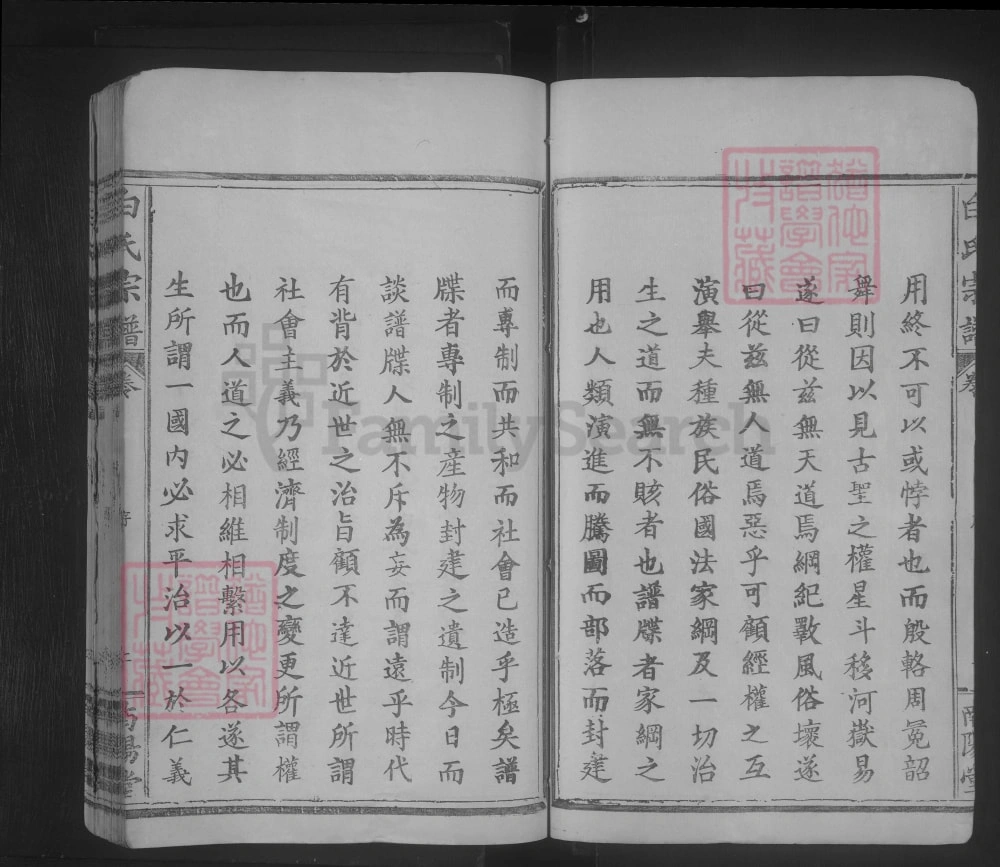 用終不可以或悖者也而殷輅周冕韶
舞則因以見古聖之權星斗移河嶽易
遂曰從茲無天道焉綱紀斁風俗壞遂
曰從茲無人道焉惡乎可顧經權之互
演舉夫種族民俗國法家綱及一切治
生之道而無不賅者也譜牒者家綱之
用也人類演進而騰圖而部落而封建
而專制而共和而社會已造乎極矣譜
牒者專制之産物封建之遺制今日而
談譜牒人無不斥為妄而謂遠乎時代
有背於近世之治旨顧不達近世所謂
社會主義乃經濟制度之變更所謂權
也而人道之必相維相繫用以各遂其
生所謂一國內必求平治以一於仁義
白氏宗譜
南陽堂
FamilySearch